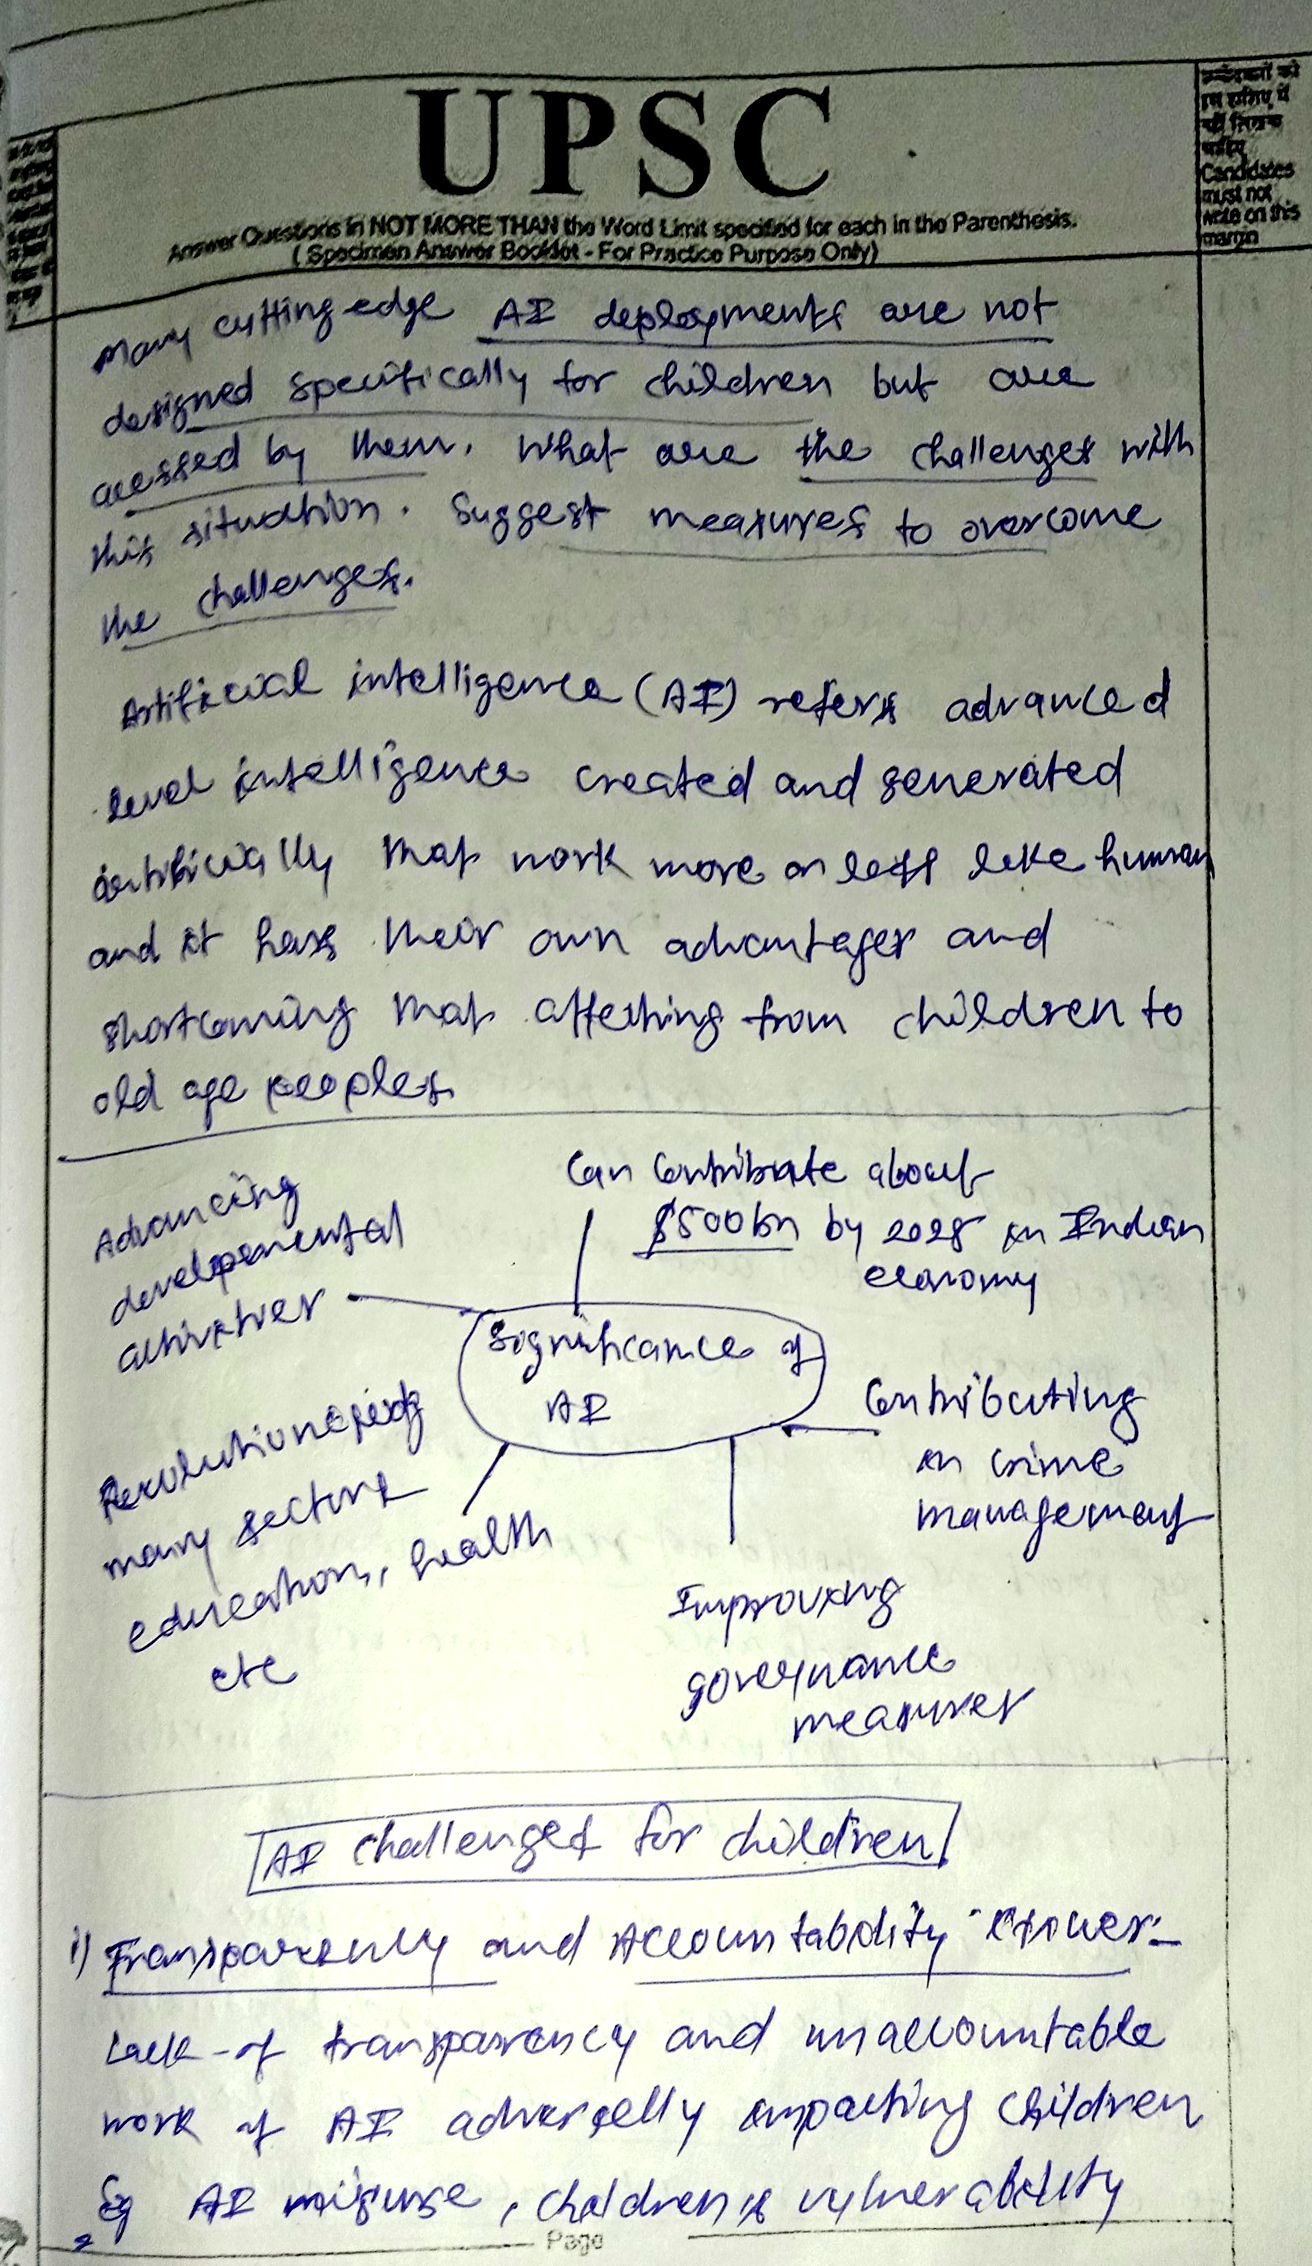 UPSC
Answer Questions in NOT MORE THAN the Word Limit specified for each in the Parenthesis.
( Specimen Answer Booklet - For Practice Purpose Only)
उम्मीदवारों को
इस हाशिए में
नहीं लिखना
चाहिए
Candidates
must not
write on this
margin
Many cutting-edge AI deployments are not
designed specifically for children but are
acessed by them. What are the challenges with
this situation. Suggest measures to overcome
the challenges.
Artificial intelligence (AI) refers advanced
level intelligence created and generated
artificially that work more or less like human
and it has their own advantages and
shortcoming that affecting from children to
old age peoples
Can contribute about
$500bn by 2025 in Indian
economy
Advancing
developmental
activities
Significance of
AI
Contributing
in crime
management
many sectors
education, health
etc
Improving
governance
measures
AI challenges for children
i) Transparency and Accountability
Lack of transparency and unaccountable
work of AI adversely impacting children
Eg AI misuse, children's vulnerability
Page